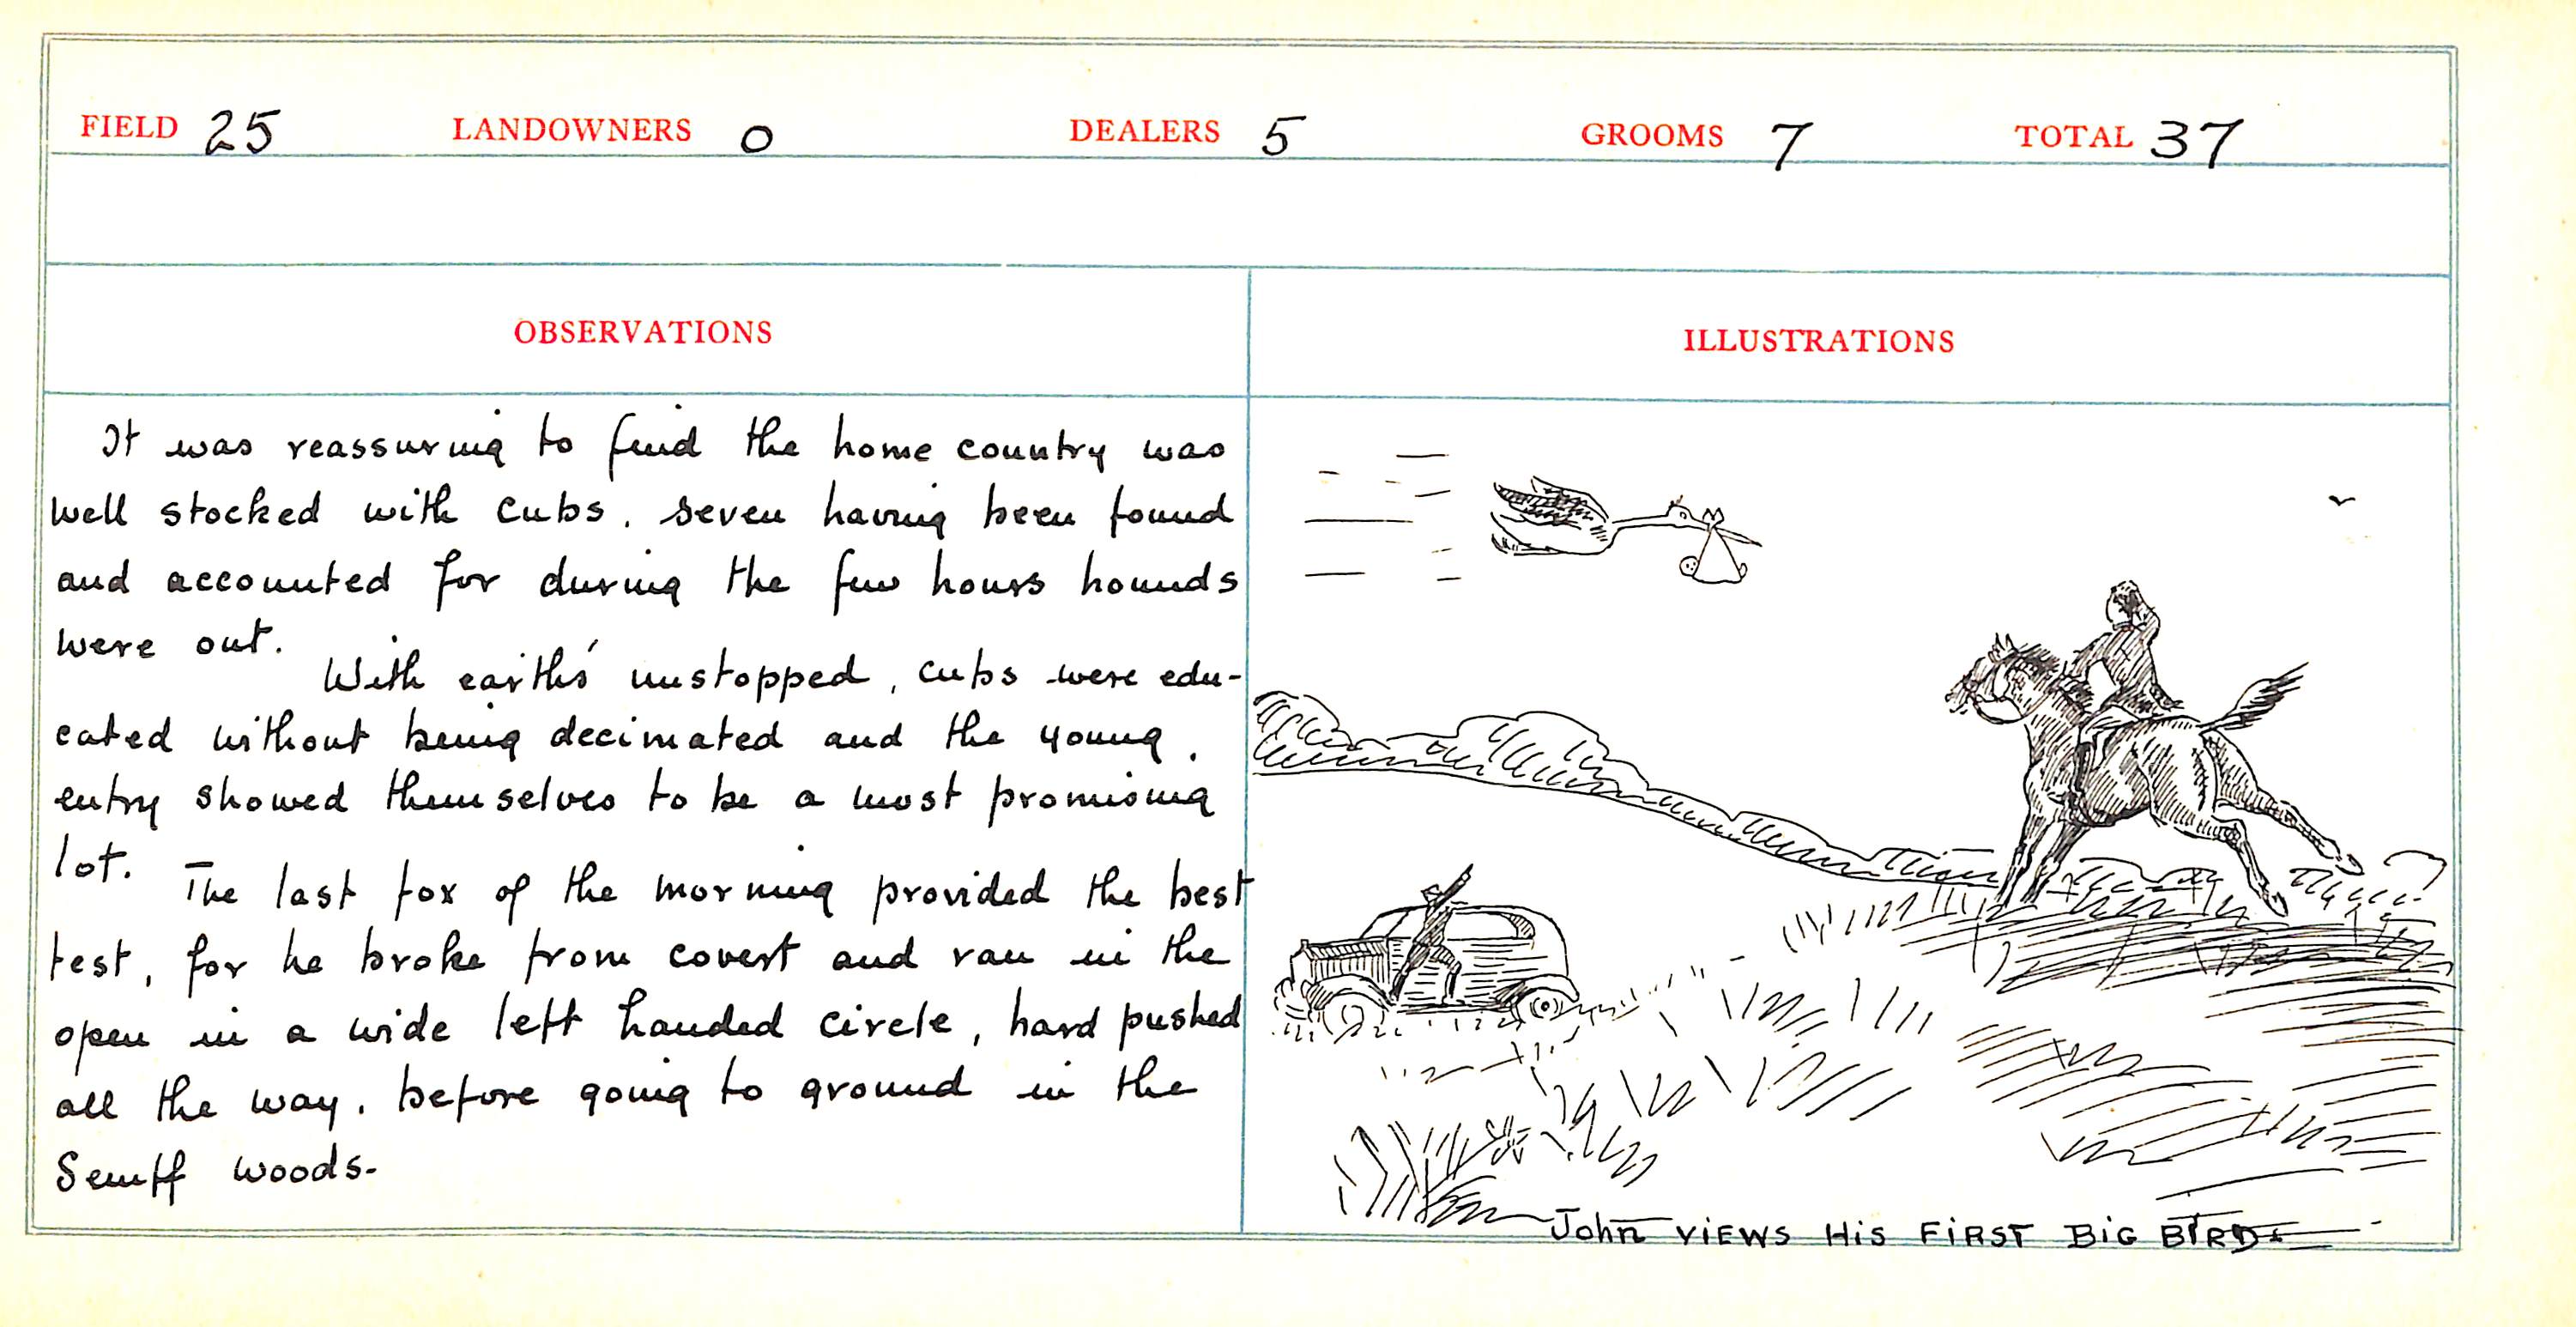 FIELD 25 LANDOWNERS 0 DEALERS 5 GROOMS 7 TOTAL 37
OBSERVATIONS
It was reassuring to find the home country was
well stocked with cubs, seven having been found
and accounted for during the few hours hounds
were out.
With earths' unstopped, cubs were edu-
cated without being decimated and the young
entry showed themselves to be a most promising
lot.
The last fox of the morning provided the best
test, for he broke from covert and ran in the
open in a wide left handed circle, hard pushed
all the way, before going to ground in the
woods-
ILLUSTRATIONS
John VIEWS HiS FiRST BiG BIRD